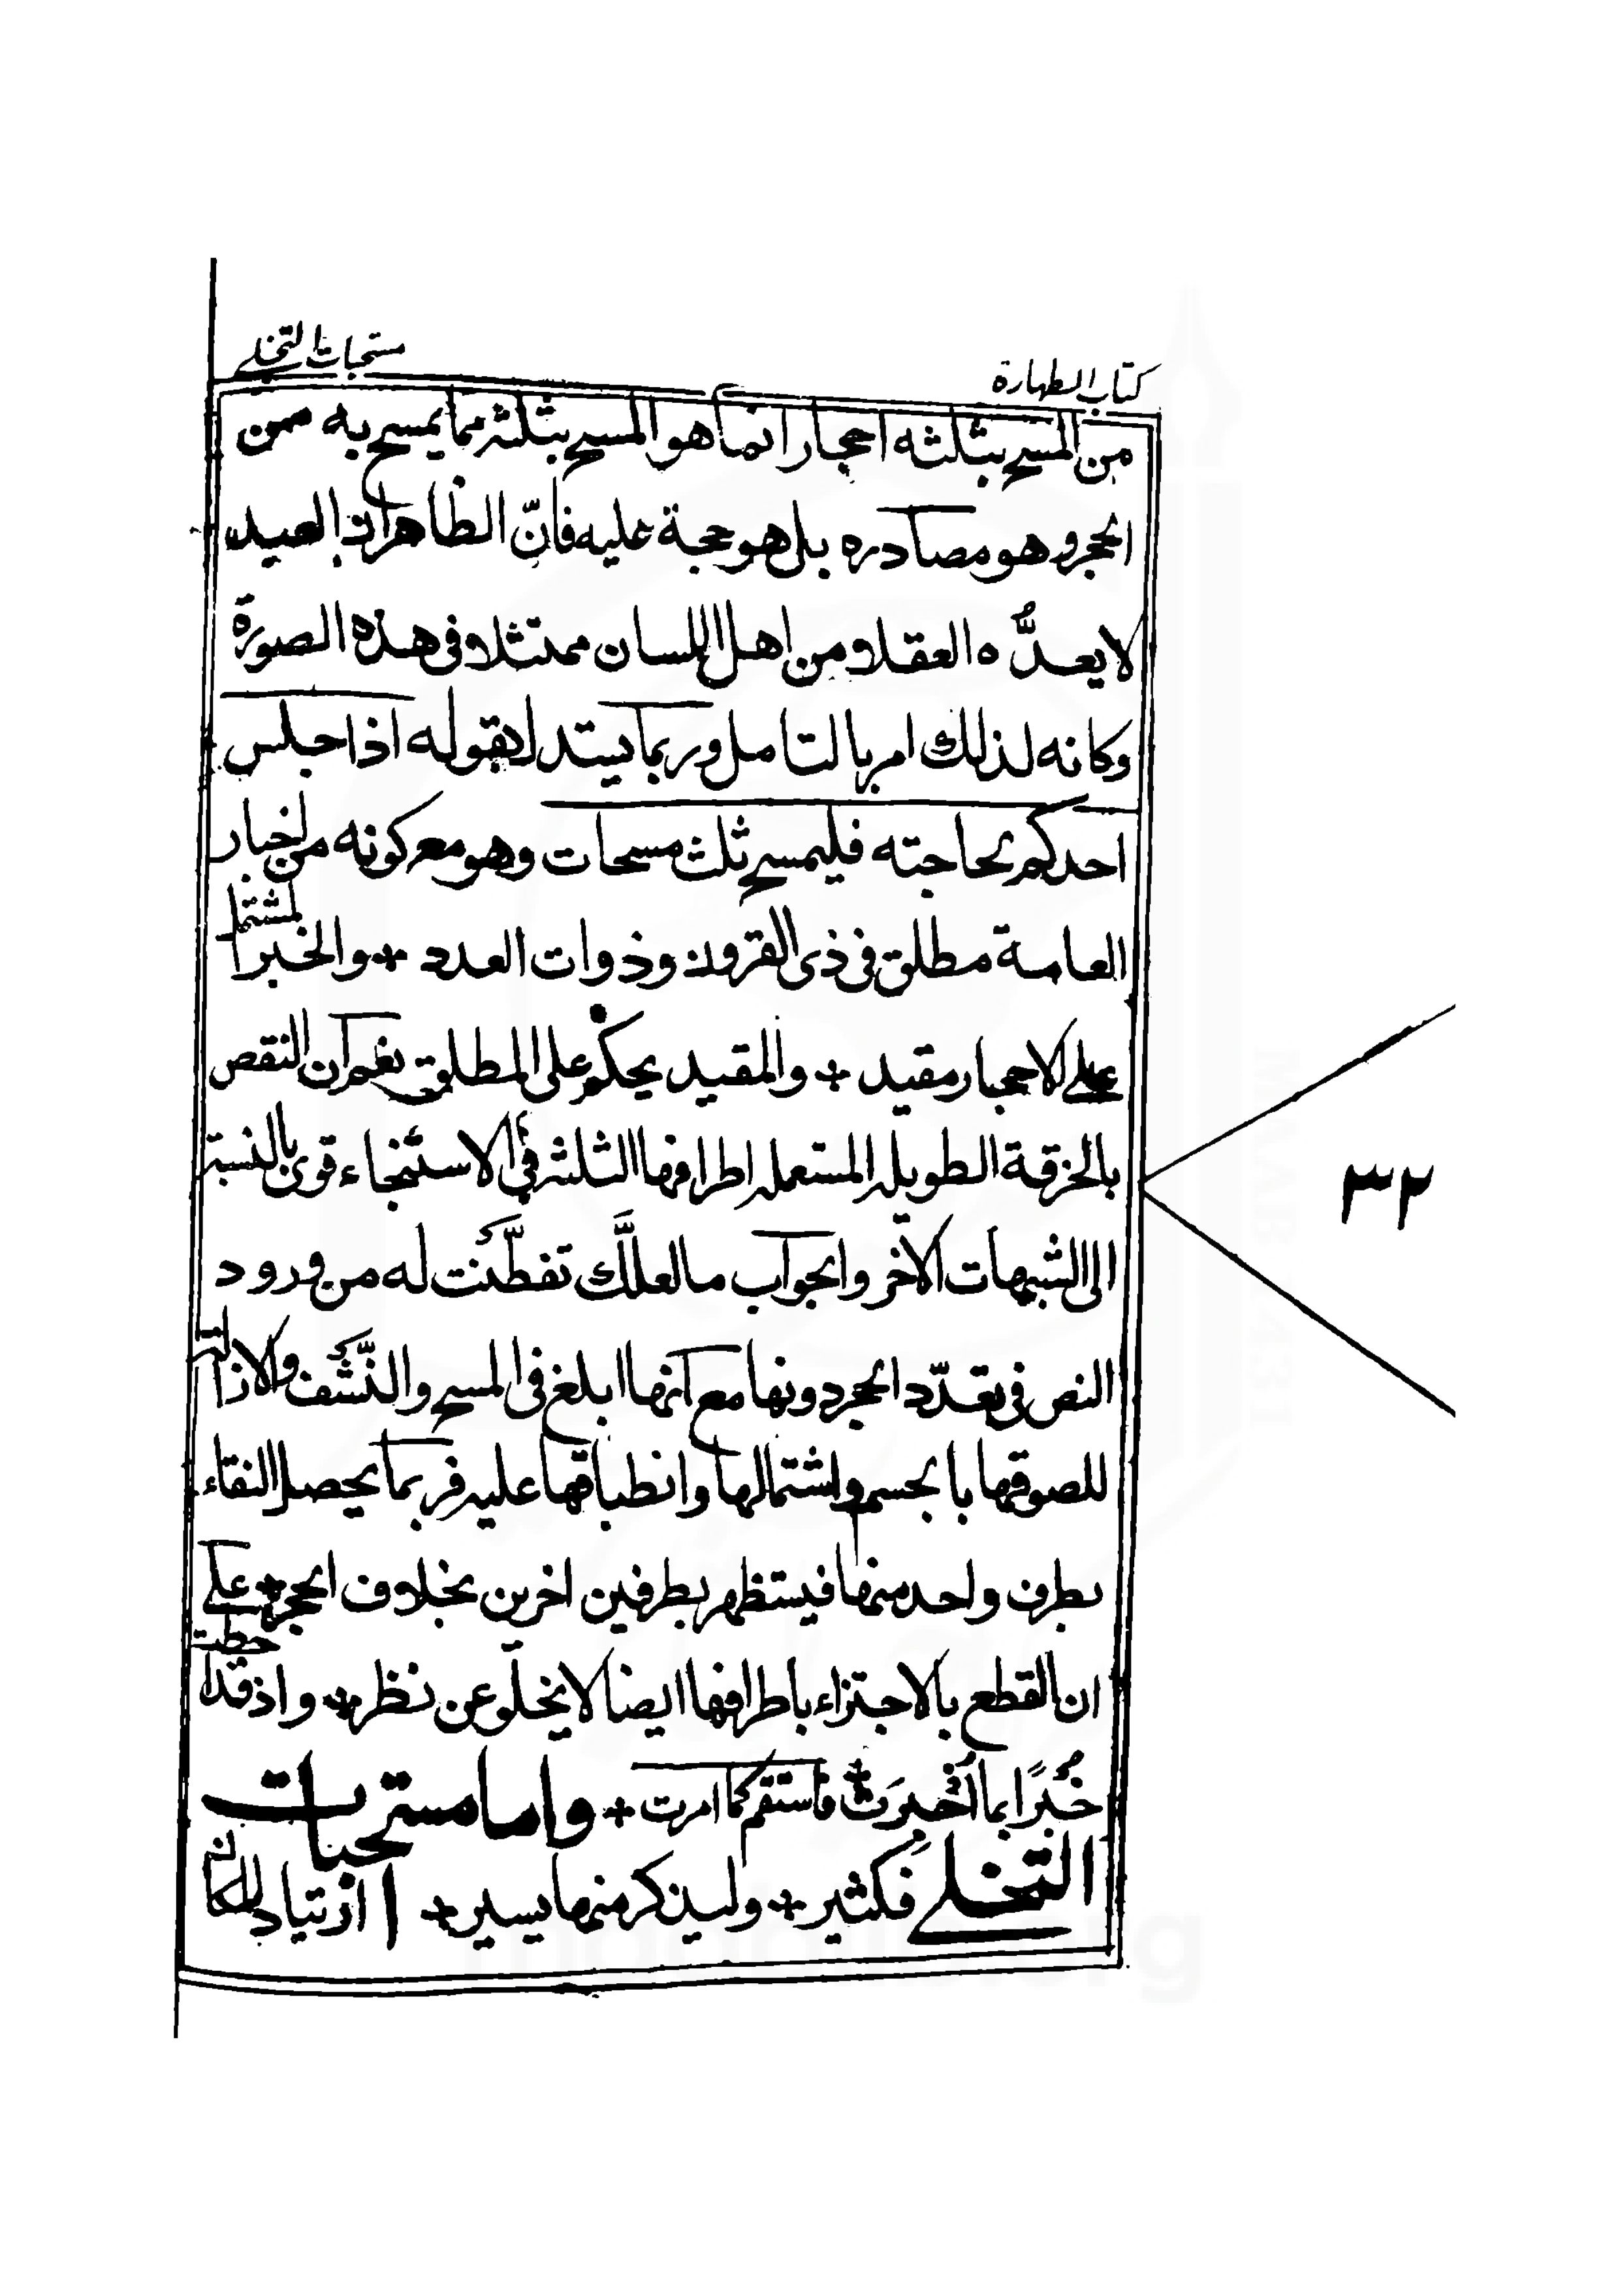 كتاب الطهارة
مستحبات التخلي
من المسح بثلثه احجار انما هو المسح بثلثة مما يمسح به من
الحجر وهو مصادره بل هو حجة عليه فانّ الظاهر ان العبيد
لا يعدُّه العقلاء من اهل اللسان ممتثلا فى هذه الصورة
وكانه لذلك امر بالتامل وربما يستدل بقوله اذا جلس
احدكم لحاجته فليمسح ثلث مسحات وهو مع كونه من اخبار
العامة مطلق فى ذى القرون وذوات العدد + والخبر المشتمل
على الاحجار مقيد + والمقيد يحكم على المطلق نعم ان النقص
بالخرقة الطويلة المستعملة اطرافها الثلثة فى الاستنجاء قوى بالنسبة
الى الشبهات الاخر والجواب ما لعلَّك تفطّنت له من ورود
النص فى تعدّد الحجر دونها مع انها ابلغ فى المسح والنَّشف والازالة
للصوقها بالجسم واشتمالها وانطباقها عليه فربما يحصل النقاء
بطرف واحد منها فيستظهر بطرفين اخرين بخلاف الحجر + على
ان القطع بالاجتزاء باطرافها ايضا لا يخلو عن نظر + واذ قد احطت
خُبرًا بما اُخبرتَ فاستقم كما امرت + واما مستحبات
التخلي فكثير + ولنذكر منها يسير + ا ارتياد المكان
٣٢